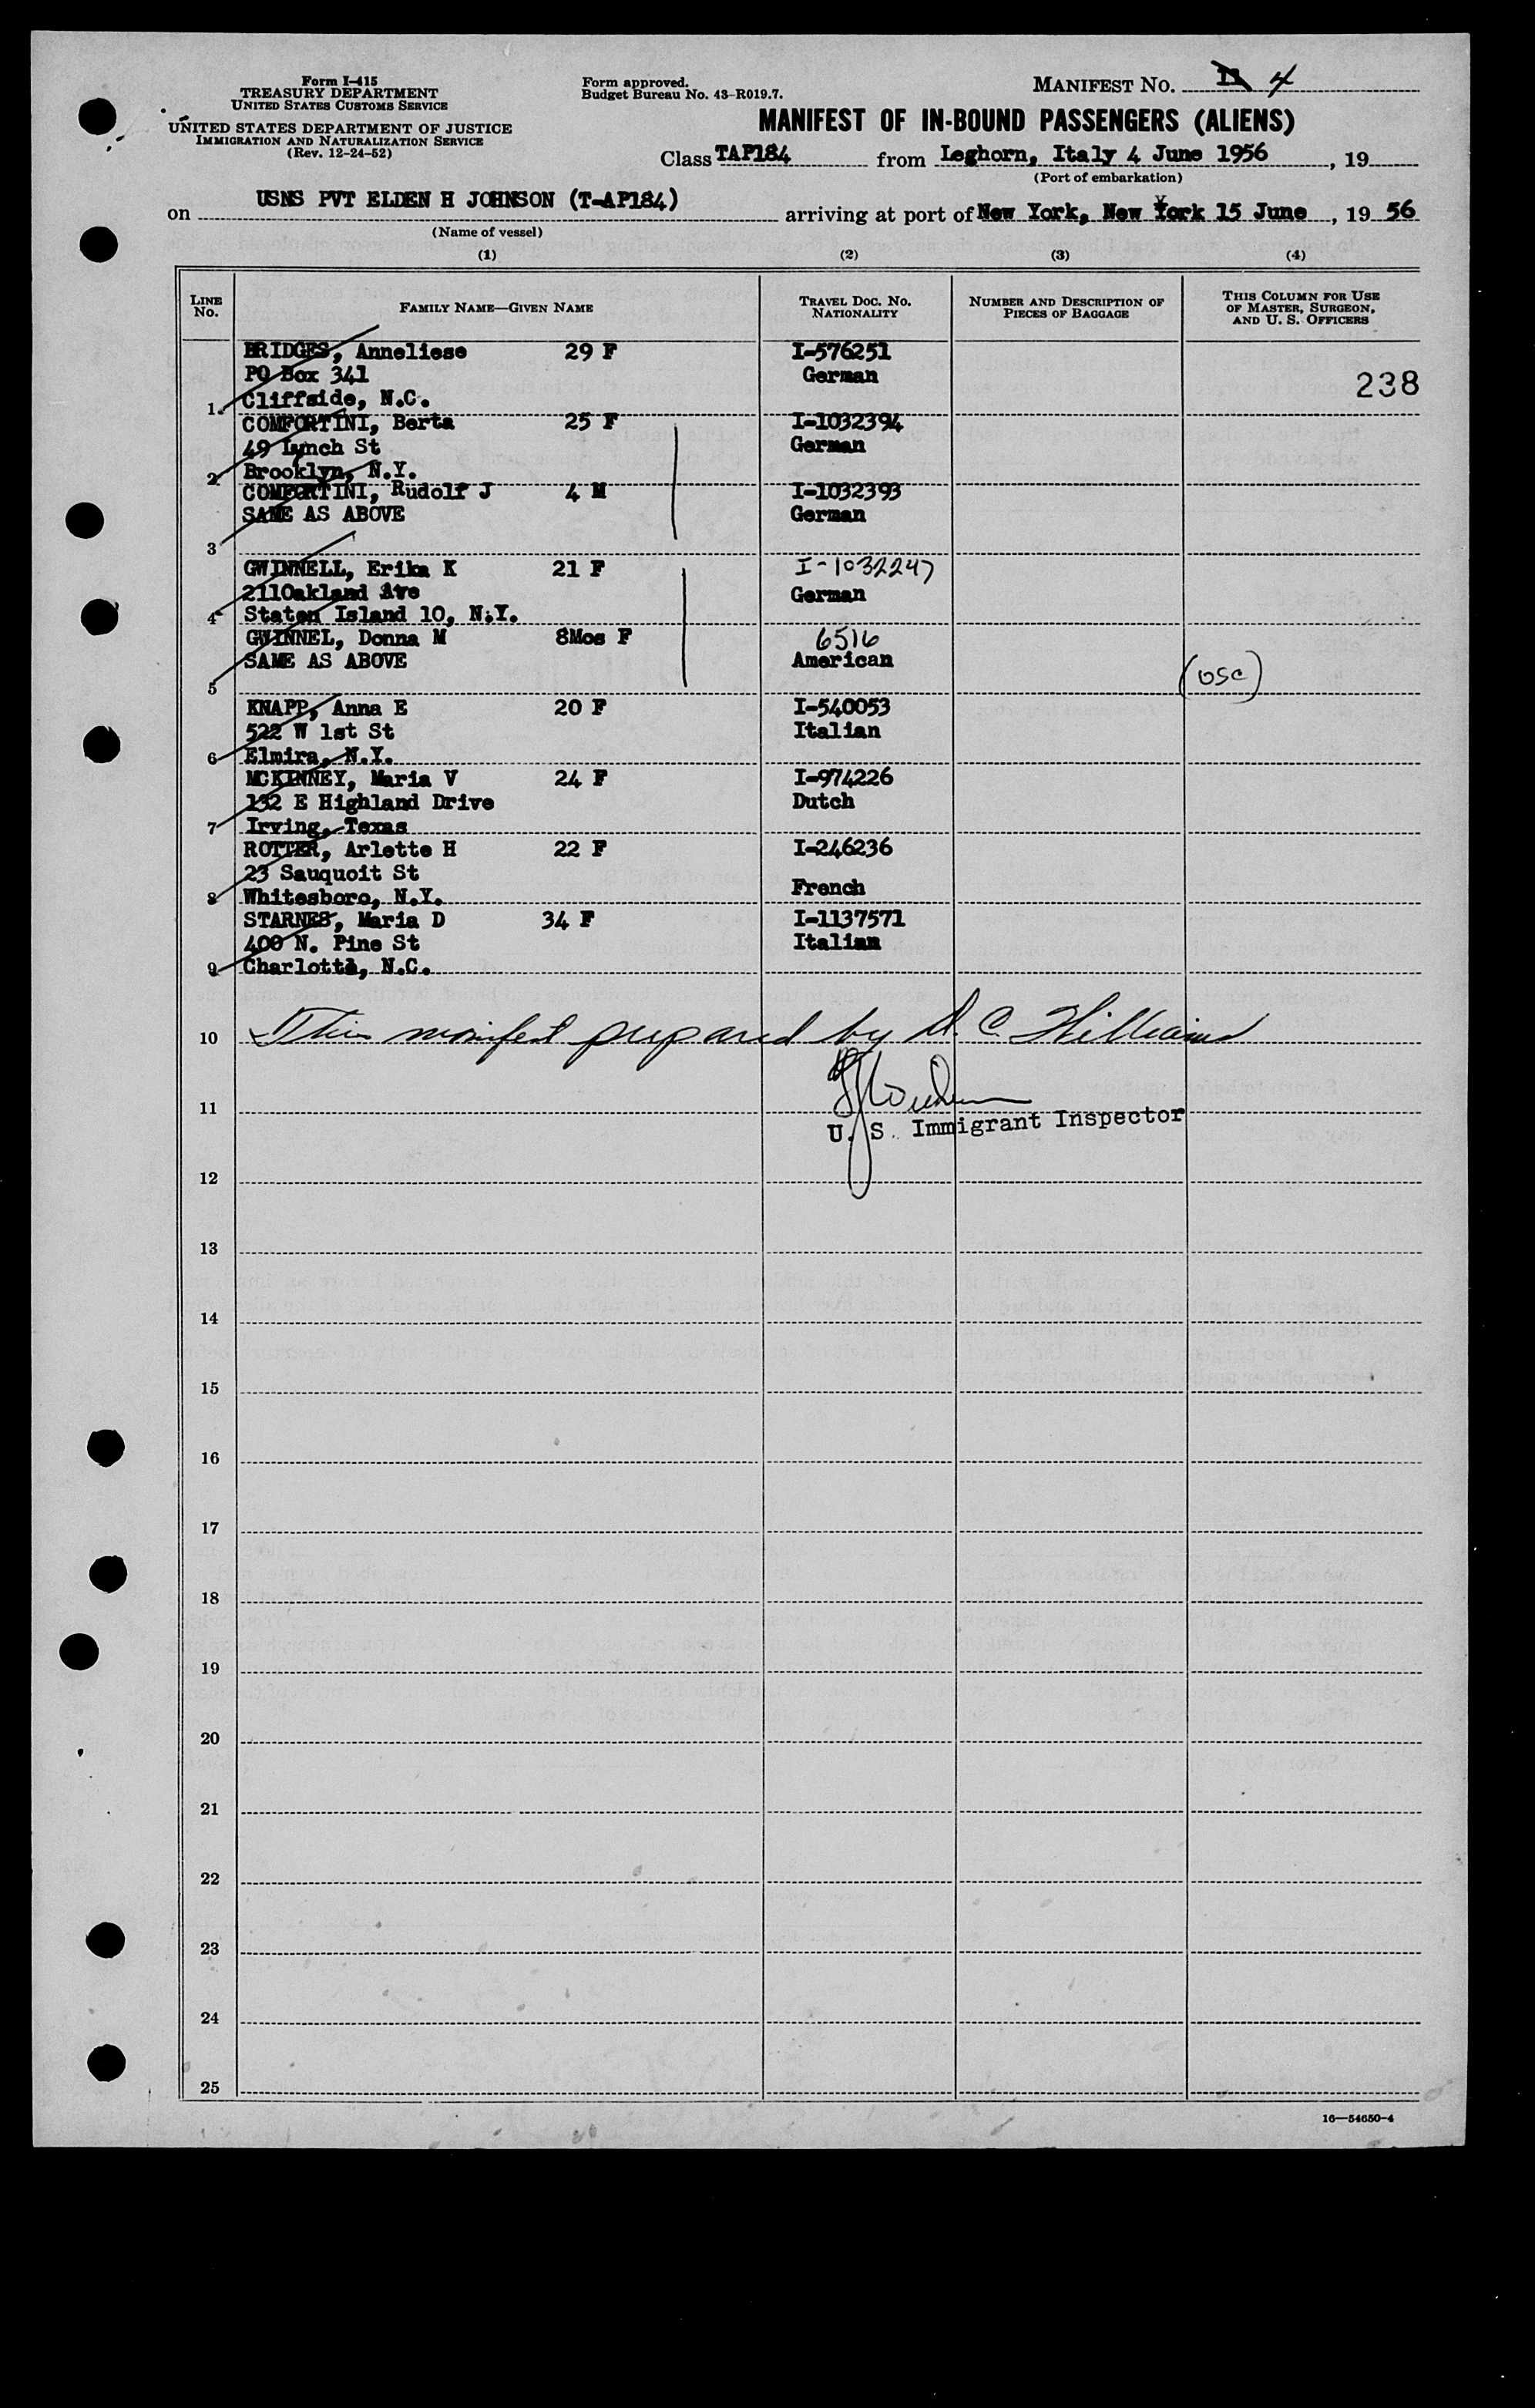 Form I-415
TREASURY DEPARTMENT
UNITED STATES CUSTOMS SERVICE
UNITED STATES DEPARTMENT OF JUSTICE
IMMIGRATION AND NATURALIZATION SERVICE
(Rev. 12-24-52)
Form approved.
Budget Bureau No. 43-R019.7.
MANIFEST No. 4
MANIFEST OF IN-BOUND PASSENGERS (ALIENS)
Class TAP184 from Leghorn, Italy 4 June 1956, 19
(Port of embarkation)
on USNS PVT ELDEN H JOHNSON (T-AP184) arriving at port of New York, New York 15 June, 19 56
(Name of vessel)
(1) (2) (3) (4)
LINE No. FAMILY NAME—GIVEN NAME TRAVEL DOC. NO. NATIONALITY NUMBER AND DESCRIPTION OF PIECES OF BAGGAGE THIS COLUMN FOR USE OF MASTER, SURGEON, AND U. S. OFFICERS
BRIDGES, Anneliese 29 F I-576251
PO Box 341 German 238
1 Cliffside, N.C.
COMFORTINI, Berta 25 F I-1032394
49 Lynch St German
2 Brooklyn, N.Y.
COMFORTINI, Rudolf J 4 M I-1032393
SAME AS ABOVE German
3
GWINNELL, Erika K 21 F I-1032247
211Oakland Ave German
4 Staten Island 10, N.Y.
GWINNEL, Donna M 8Mos F 6516
SAME AS ABOVE American
5 (USC)
KNAPP, Anna E 20 F I-540053
522 W 1st St Italian
6 Elmira, N.Y.
MCKINNEY, Maria V 24 F I-974226
132 E Highland Drive Dutch
7 Irving, Texas
ROTTER, Arlette H 22 F I-246236
23 Sauquoit St
French
8 Whitesboro, N.Y.
STARNES, Maria D 34 F I-1137571
400 N. Pine St Italian
9 Charlotte, N.C.
10 This manifest prepared by D. C. Williams
11
U. S. Immigrant Inspector
12
13
14
15
16
17
18
19
20
21
22
23
24
25
16—54650-4